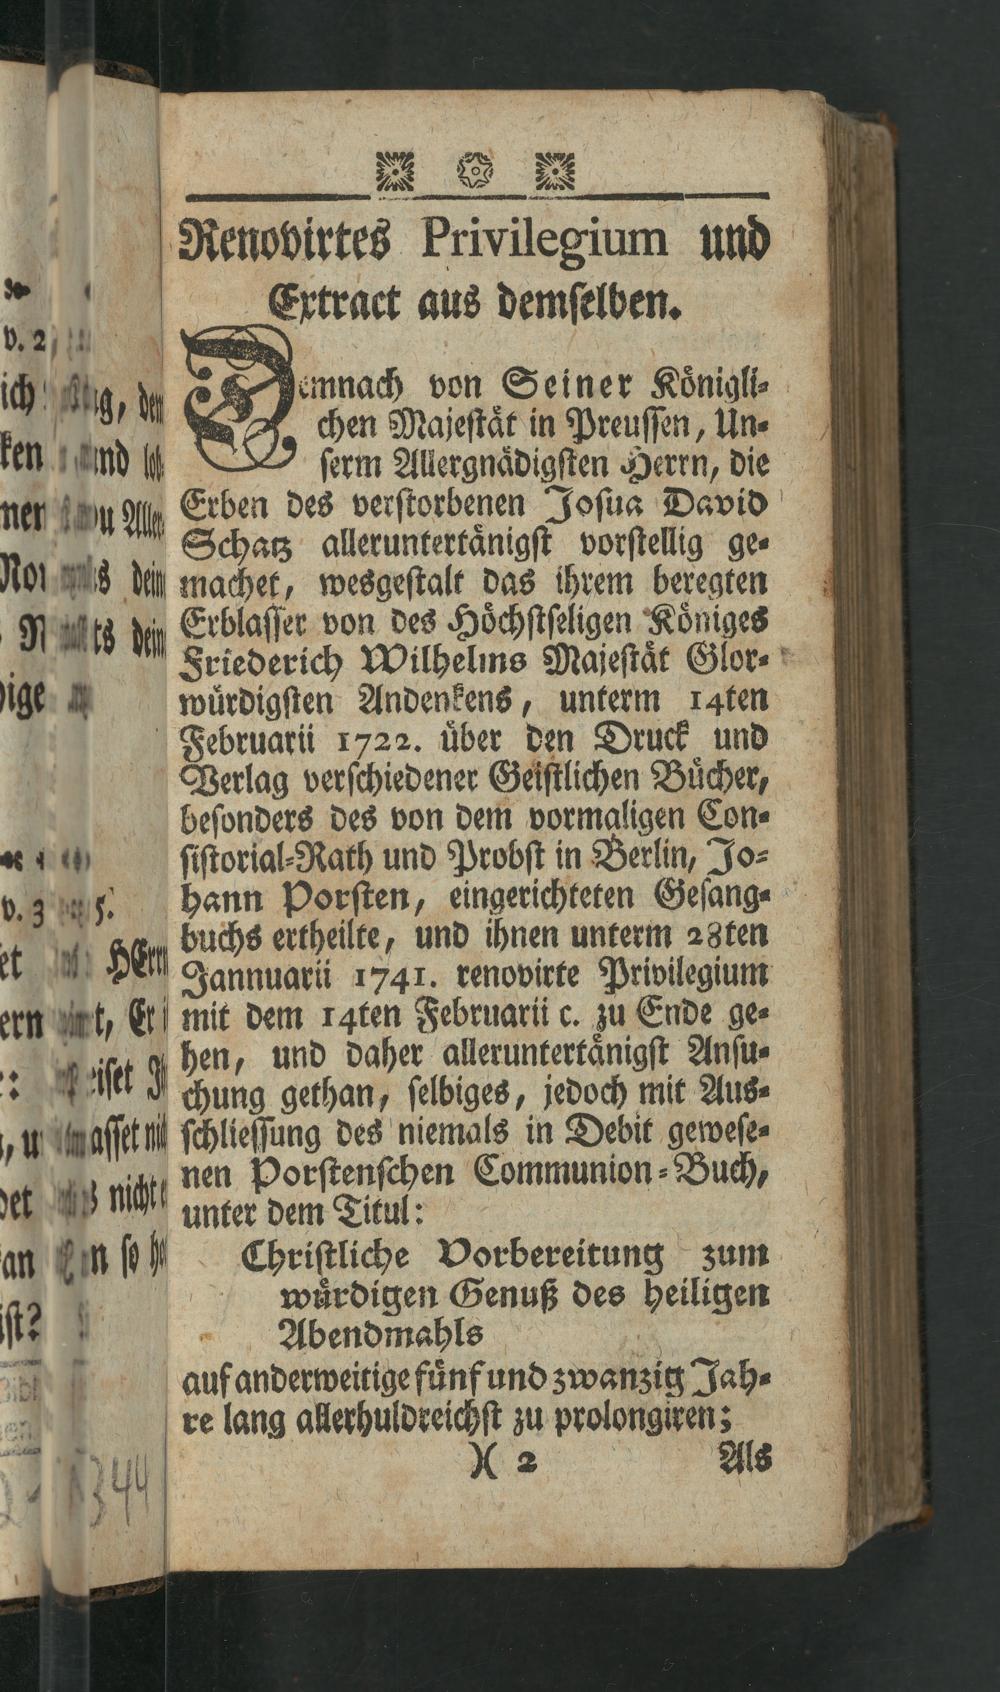 Renovirtes Privilegium und
Extract aus demselben.
Demnach von Seiner Königli-
chen Majestät in Preussen, Un-
serm Allergnädigsten Herrn, die
Erben des verstorbenen Josua David
Schatz alleruntertänigst vorstellig ge-
machet, wesgestalt das ihrem beregten
Erblasser von des Höchstseligen Königes
Friederich Wilhelms Majestät Glor-
würdigsten Andenkens, unterm 14ten
Februarii 1722. über den Druck und
Verlag verschiedener Geistlichen Bücher,
besonders des von dem vormaligen Con-
sistorial-Rath und Probst in Berlin, Jo-
hann Porsten, eingerichteten Gesang-
buchs ertheilte, und ihnen unterm 28ten
Jannuarii 1741. renovirte Privilegium
mit dem 14ten Februarii c. zu Ende ge-
hen, und daher alleruntertänigst Ansu-
chung gethan, selbiges, jedoch mit Aus-
schliessung des niemals in Debit gewese-
nen Porstenschen Communion-Buch,
unter dem Titul:
Christliche Vorbereitung zum
würdigen Genuß des heiligen
Abendmahls
auf anderweitige fünf und zwanzig Jah-
re lang allerhuldreichst zu prolongiren;
)( 2 Als